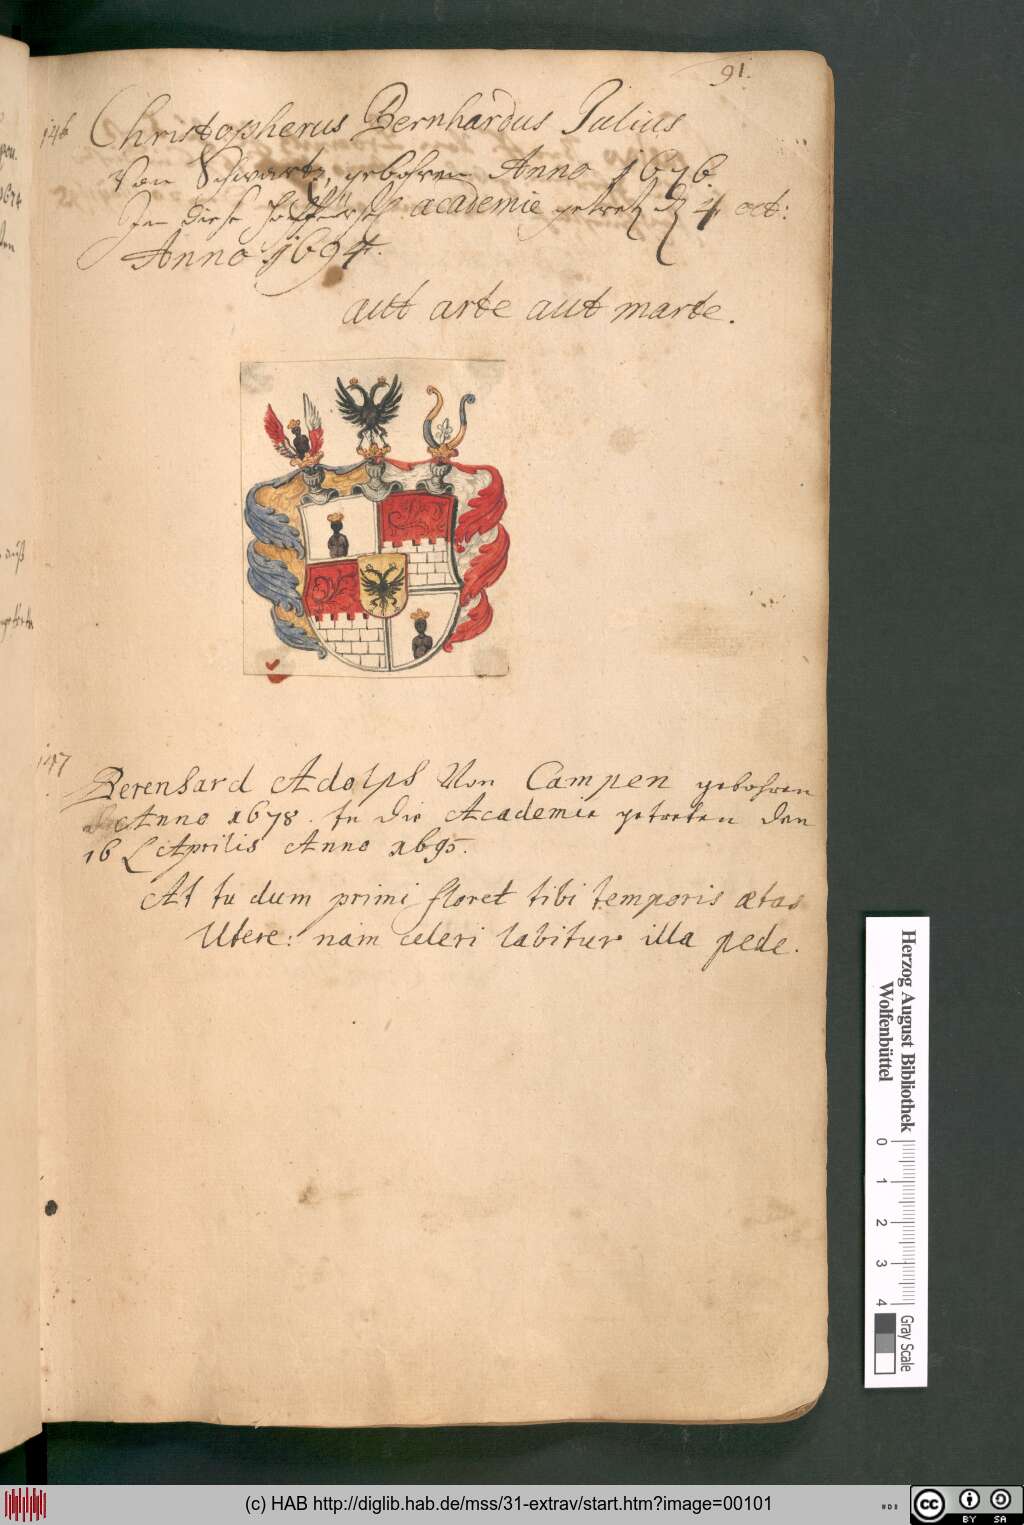 91.
146 Christopherus Bernhardus Julius
Von Schwartz, gebohren Anno 1676.
In diese hochfürstl. academie getretn d 4 oct:
Anno 1694.
aut arte aut marte.
147
Berenhard Adolph Von Campen gebohren
Anno 1678. In die Academie getreten den
16 Aprilis Anno 1695.
At tu dum primi floret tibi temporis ætas
Utere: nam celeri labitur illa pede.
Herzog August Bibliothek
Wolfenbüttel
0 1 2 3 4
Gray Scale
(c) HAB http://diglib.hab.de/mss/31-extrav/start.htm?image=00101
cc BY SA